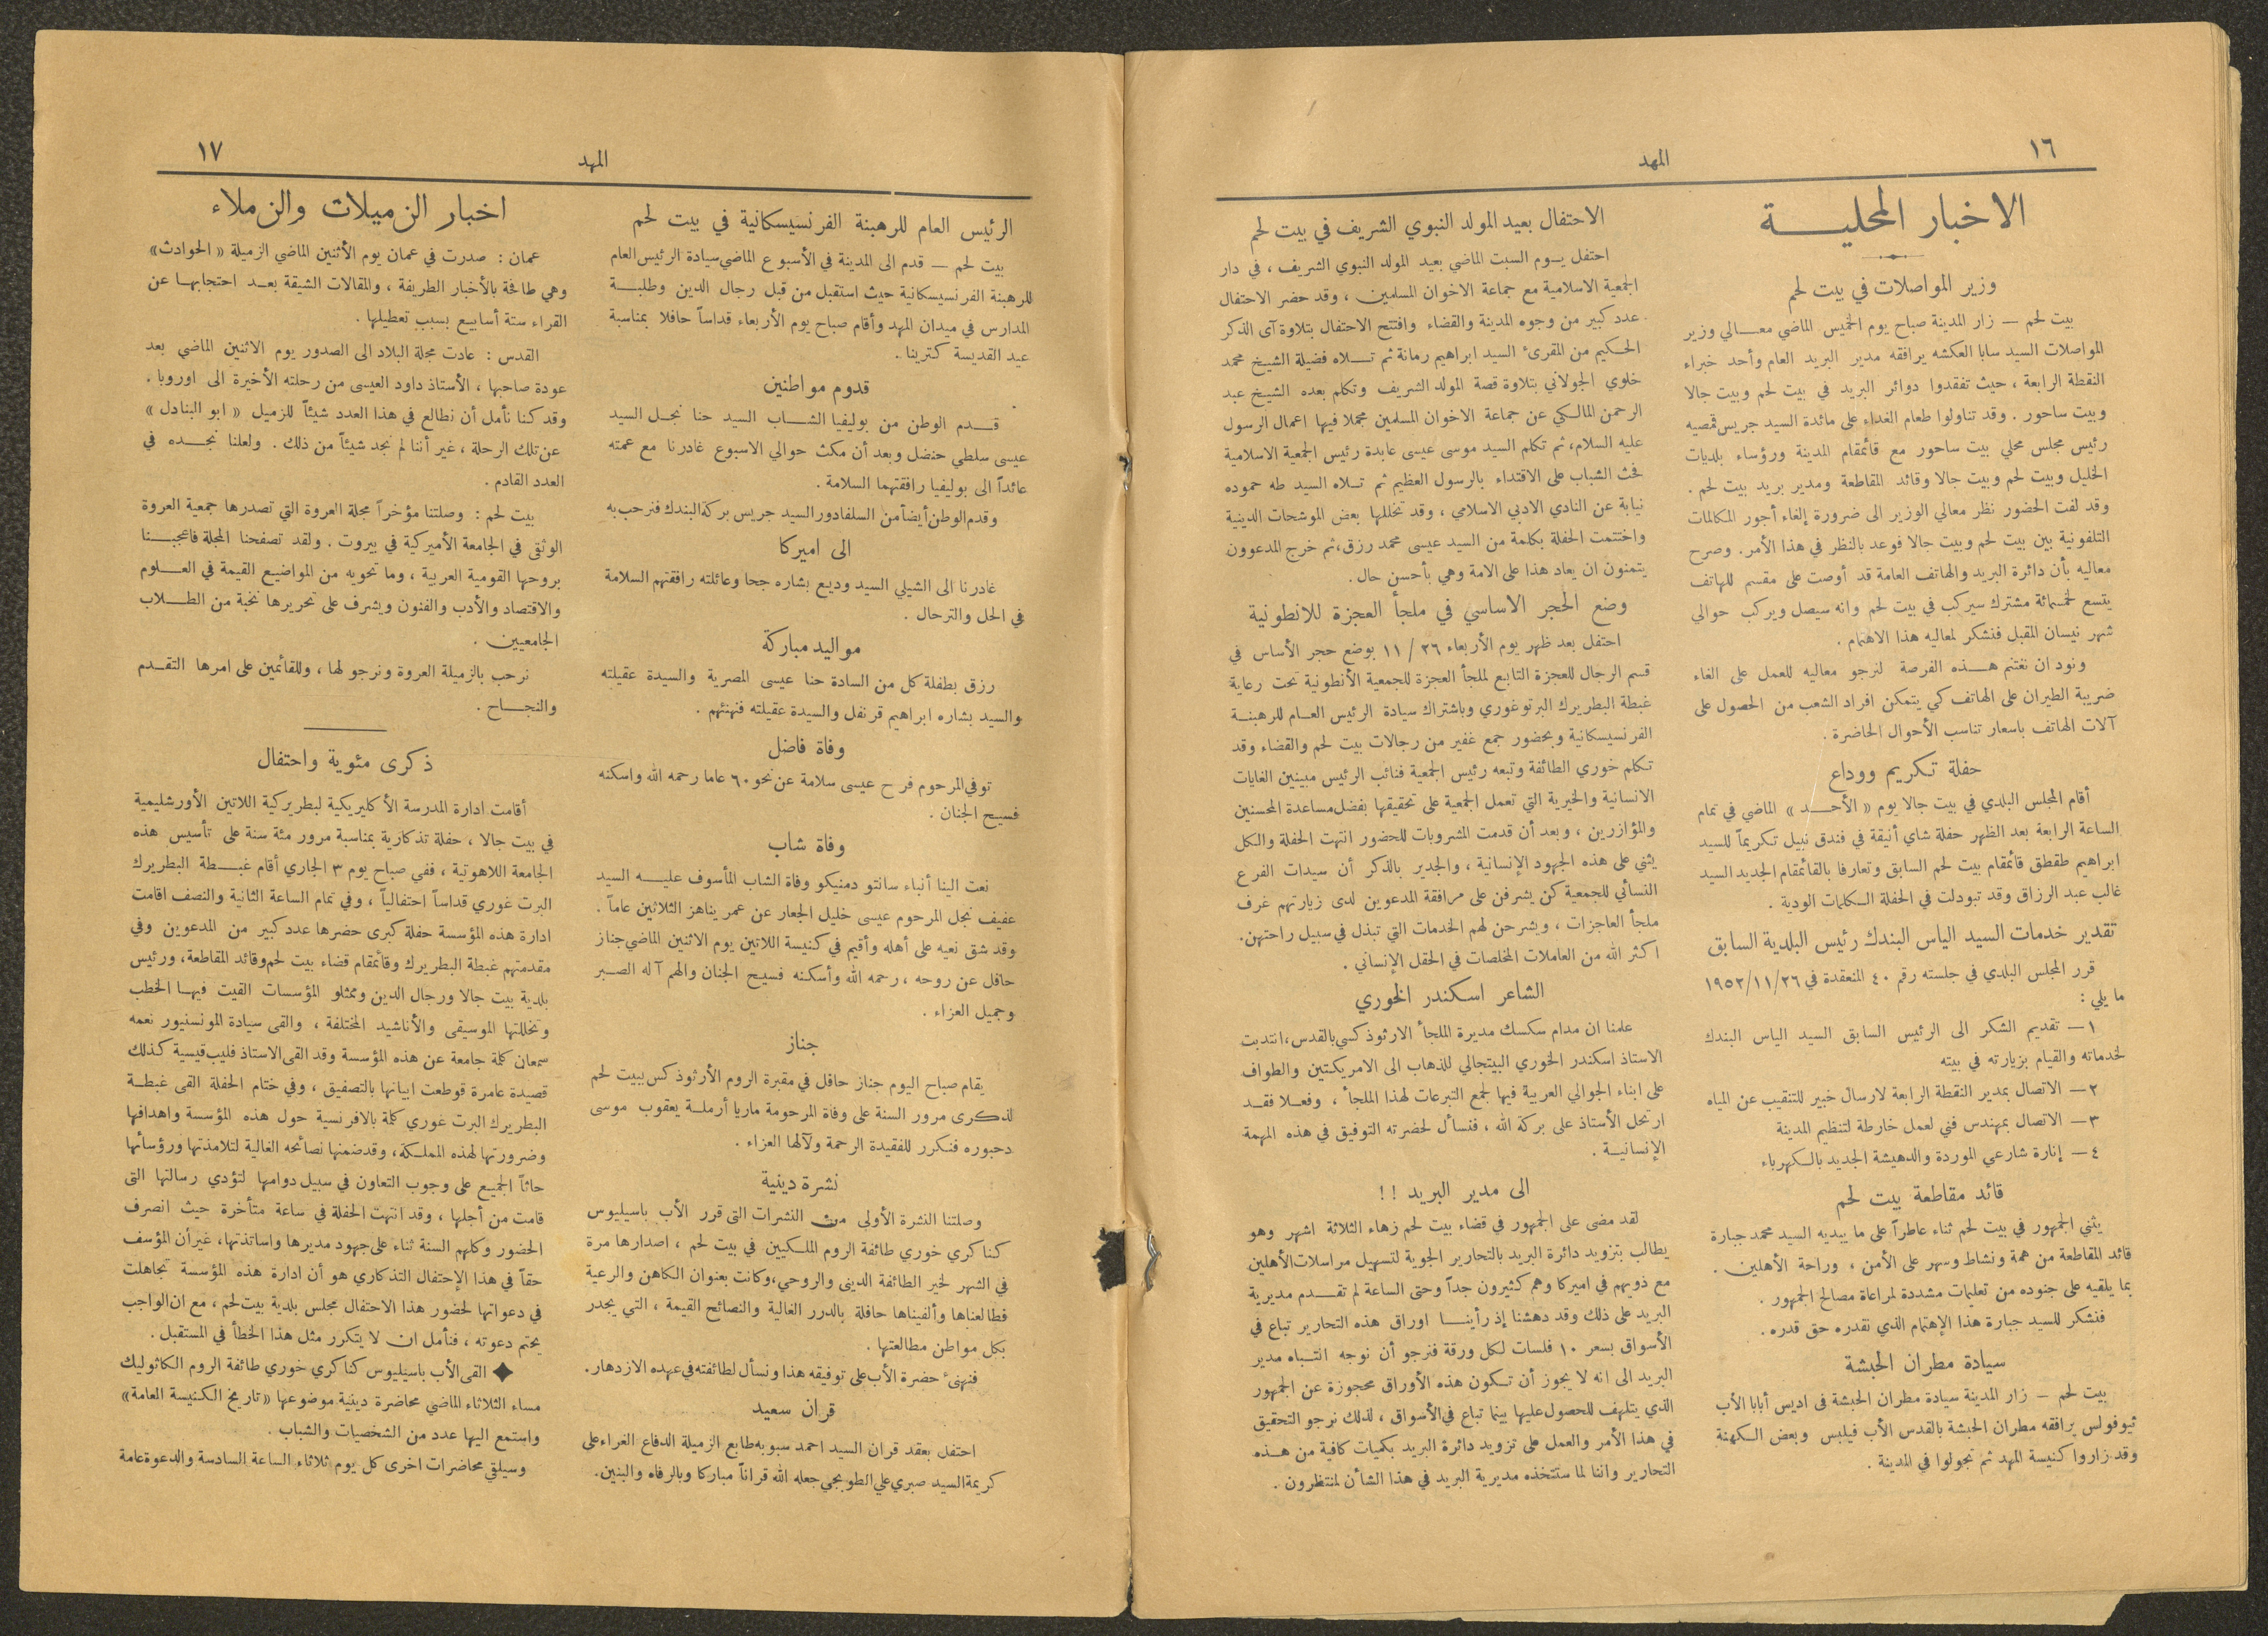 ١٦
المهد
الاخبار المحلية
وزير المواصلات في بيت لحم
بيت لحم — زار المدينة صباح يوم الخميس الماضي معالي وزير
المواصلات السيد سابا العكشه يرافقه مدير البريد العام وأحد خبراء
النقطة الرابعة ، حيث تفقدوا دوائر البريد في بيت لحم وبيت جالا
وبيت ساحور . وقد تناولوا طعام الغداء على مائدة السيد جريس قمصيه
رئيس مجلس محلي بيت ساحور مع قائمقام المدينة ورؤساء بلديات
الخليل وبيت لحم وبيت جالا وقائد المقاطعة ومدير بريد بيت لحم .
وقد لفت الحضور نظر معالي الوزير الى ضرورة إلغاء أجور المكالمات
التلفونية بين بيت لحم وبيت جالا فوعد بالنظر في هذا الأمر . وصرح
معاليه بأن دائرة البريد والهاتف العامة قد أوصت على مقسم للهاتف
يتسع لخمسمائة مشترك سيركب في بيت لحم وانه سيصل ويركب حوالي
شهر نيسان المقبل فنشكر لمعاليه هذا الاهتمام .
ونود ان نغتنم هذه الفرصة لنرجو معاليه للعمل على الغاء
ضريبة الطيران على الهاتف كي يتمكن افراد الشعب من الحصول على
آلات الهاتف باسعار تناسب الأحوال الحاضرة .
حفلة تكريم ووداع
أقام المجلس البلدي في بيت جالا يوم « الأحد » الماضي في تمام
الساعة الرابعة بعد الظهر حفلة شاي أنيقة في فندق نبيل تكريماً للسيد
ابراهيم طقطق قائمقام بيت لحم السابق وتعارفا بالقائمقام الجديد السيد
غالب عبد الرزاق وقد تبودلت في الحفلة الكلمات الودية .
تقدير خدمات السيد الياس البندك رئيس البلدية السابق
قرر المجلس البلدي في جلسته رقم ٤٠ المنعقدة في ١٩٥٢/١١/٢٦
ما يلي :
١ — تقديم الشكر الى الرئيس السابق السيد الياس البندك
لخدماته والقيام بزيارته في بيته
٢ — الاتصال بمدير النقطة الرابعة لارسال خبير للتنقيب عن المياه
٣ — الاتصال بمهندس فني لعمل خارطة لتنظيم المدينة
٤ — إنارة شارعي الموردة والدهيشة الجديد بالكهرباء
قائد مقاطعة بيت لحم
يثني الجمهور في بيت لحم ثناء عاطراً على ما يبديه السيد محمد جبارة
قائد المقاطعة من همة ونشاط وسهر على الأمن ، وراحة الأهلين .
بما يلقيه على جنوده من تعليمات مشددة لمراعاة مصالح الجمهور .
فنشكر للسيد جبارة هذا الإهتمام الذي نقدره حق قدره .
سيادة مطران الحبشة
بيت لحم — زار المدينة سيادة مطران الحبشة في اديس أبابا الأب
ثيوفولس يرافقه مطران الحبشة بالقدس الأب فيلبس وبعض الكهنة
وقد زاروا كنيسة المهد ثم تجولوا في المدينة .
الاحتفال بعيد المولد النبوي الشريف في بيت لحم
احتفل يوم السبت الماضي بعيد المولد النبوي الشريف ، في دار
الجمعية الاسلامية مع جماعة الاخوان المسلمين ، وقد حضر الاحتفال
عدد كبير من وجوه المدينة والقضاء وافتتح الاحتفال بتلاوة آى الذكر
الحكيم من المقرئ السيد ابراهيم رمانة ثم تلاه فضيلة الشيخ محمد
خلوي الجولاني بتلاوة قصة المولد الشريف وتكلم بعده الشيخ عبد
الرحمن المالكي عن جماعة الاخوان المسلمين مجملا فيها اعمال الرسول
عليه السلام ، ثم تكلم السيد موسى عيسى عابدة رئيس الجمعية الاسلامية
فحث الشباب على الاقتداء بالرسول العظيم ثم تلاه السيد طه حموده
نيابة عن النادي الادبي الاسلامي ، وقد تخللها بعض الموشحات الدينية
واختتمت الحفلة بكلمة من السيد عيسى محمد رزق ، ثم خرج المدعوون
يتمنون ان يعاد هذا على الامة وهي بأحسن حال .
وضع الحجر الاساسي في ملجأ العجزة للانطونية
احتفل بعد ظهر يوم الأربعاء ٢٦ / ١١ بوضع حجر الأساس في
قسم الرجال للعجزة التابع لملجأ العجزة للجمعية الأنطونية تحت رعاية
غبطة البطريرك البرتو غوري وباشتراك سيادة الرئيس العام للرهبنة
الفرنسيسكانية وبحضور جمع غفير من رجالات بيت لحم والقضاء وقد
تكلم خوري الطائفة وتبعه رئيس الجمعية فنائب الرئيس مبينين الغايات
الانسانية والخيرية التي تعمل الجمعية على تحقيقها بفضل مساعدة المحسنين
والمؤازرين ، وبعد أن قدمت المشروبات للحضور انتهت الحفلة والكل
يثني على هذه الجهود الإنسانية ، والجدير بالذكر أن سيدات الفرع
النسائي للجمعية كن يشرفن على مرافقة المدعوين لدى زيارتهم غرف
ملجأ العاجزات ، ويشرحن لهم الخدمات التي تبذل في سبيل راحتهن .
اكثر الله من العاملات المخلصات في الحقل الإنساني .
الشاعر اسكندر الخوري
علمنا ان مدام سكسك مديرة الملجأ الارثوذكسي بالقدس ، انتدبت
الاستاذ اسكندر الخوري البيتجالي للذهاب الى الامريكتين والطواف
على ابناء الجوالي العربية فيها لجمع التبرعات لهذا الملجأ ، وفعلا فقد
ارتحل الأستاذ على بركة الله ، فنسأل لحضرته التوفيق في هذه المهمة
الإنسانية .
الى مدير البريد ! !
لقد مضى على الجمهور في قضاء بيت لحم زهاء الثلاثة اشهر وهو
يطالب بتزويد دائرة البريد بالتحارير الجوية لتسهيل مراسلات الأهلين
مع ذويهم في اميركا وهم كثيرون جداً وحتى الساعة لم تقدم مديرية
البريد على ذلك وقد دهشنا إذ رأينا اوراق هذه التحارير تباع في
الأسواق بسعر ١٠ فلسات لكل ورقة فنرجو أن نوجه انتباه مدير
البريد الى انه لا يجوز أن تكون هذه الأوراق محجوزة عن الجمهور
الذي يتلهف للحصول عليها بينما تباع في الأسواق ، لذلك نرجو التحقيق
في هذا الأمر والعمل على تزويد دائرة البريد بكميات كافية من هذه
التحارير واننا لما ستتخذه مديرية البريد في هذا الشأن لمنتظرون .
المهد
١٧
الرئيس العام للرهبنة الفرنسيسكانية في بيت لحم
بيت لحم — قدم الى المدينة في الأسبوع الماضي سيادة الرئيس العام
للرهبنة الفرنسيسكانية حيث استقبل من قبل رجال الدين وطلبة
المدارس في ميدان المهد وأقام صباح يوم الأربعاء قداساً حافلا بمناسبة
عيد القديسة كترينا .
قدوم مواطنين
قدم الوطن من بوليفيا الشاب السيد حنا نجل السيد
عيسى سلطي حنضل وبعد أن مكث حوالي الاسبوع غادرنا مع عمته
عائداً الى بوليفيا رافقتهما السلامة .
وقدم الوطن أيضاً من السلفادور السيد جريس بركة البندك فنرحب به
الى اميركا
غادرنا الى الشيلي السيد وديع بشاره جحا وعائلته رافقتهم السلامة
في الحل والترحال .
مواليد مباركة
رزق بطفلة كل من السادة حنا عيسى المصرية والسيدة عقيلته
والسيد بشاره ابراهيم قرنفل والسيدة عقيلته فنهنئهم .
وفاة فاضل
توفي المرحوم فرح عيسى سلامة عن نحو ٦٠ عاما رحمه الله واسكنه
فسيح الجنان .
وفاة شاب
نعت الينا أنباء سانتو دمنيكو وفاة الشاب المأسوف عليه السيد
عفيف نجل المرحوم عيسى خليل الجعار عن عمر يناهز الثلاثين عاماً .
وقد شق نعيه على أهله وأقيم في كنيسة اللاتين يوم الاثنين الماضي جناز
حافل عن روحه ، رحمه الله وأسكنه فسيح الجنان والهم آله الصبر
وجميل العزاء .
جناز
يقام صباح اليوم جناز حافل في مقبرة الروم الأرثوذكس ببيت لحم
لذكرى مرور السنة على وفاة المرحومة ماريا أرملة يعقوب موسى
دحبوره فنكرر للفقيدة الرحمة ولآلها العزاء .
نشرة دينية
وصلتنا النشرة الأولى من النشرات التى قرر الأب باسيليوس
كناكري خوري طائفة الروم الملكيين في بيت لحم ، اصدارها مرة
في الشهر لخير الطائفة الديني والروحي ، وكانت بعنوان الكاهن والرعية
فطالعناها وألفيناها حافلة بالدرر الغالية والنصائح القيمة ، التي يجدر
بكل مواطن مطالعتها .
فنهنئ حضرة الأب على توفيقه هذا ونسأل لطائفته في عهده الازدهار .
قران سعيد
احتفل بعقد قران السيد احمد سبوبه طابع الزميلة الدفاع الغراء على
كريمة السيد صبري علي الطوبجي جعله الله قراناً مباركا وبالرفاه والبنين .
اخبار الزميلات والزملاء
عمان : صدرت في عمان يوم الأثنين الماضي الزميلة « الحوادث »
وهي طافحة بالأخبار الطريفة ، والمقالات الشيقة بعد احتجابها عن
القراء ستة أسابيع بسبب تعطيلها .
القدس : عادت مجلة البلاد الى الصدور يوم الاثنين الماضي بعد
عودة صاحبها ، الأستاذ داود العيسى من رحلته الأخيرة الى اوروبا .
وقد كنا نأمل أن نطالع في هذا العدد شيئاً للزميل « ابو البنادل »
عن تلك الرحلة ، غير أننا لم نجد شيئاً من ذلك . ولعلنا نجده في
العدد القادم .
بيت لحم : وصلتنا مؤخراً مجلة العروة التي تصدرها جمعية العروة
الوثقى في الجامعة الأميركية في بيروت . ولقد تصفحنا المجلة فاعجبنا
بروحها القومية العربية ، وما تحويه من المواضيع القيمة في العلوم
والاقتصاد والأدب والفنون ويشرف على تحريرها نخبة من الطلاب
الجامعيين .
نرحب بالزميلة العروة ونرجو لها ، وللقائمين على امرها التقدم
والنجاح .
ذكرى مئوية واحتفال
أقامت ادارة المدرسة الأكليريكية لبطريركية اللاتين الأورشليمية
في بيت جالا ، حفلة تذكارية بمناسبة مرور مئة سنة على تأسيس هذه
الجامعة اللاهوتية ، ففي صباح يوم ٣ الجاري أقام غبطة البطريرك
البرت غوري قداساً احتفالياً ، وفي تمام الساعة الثانية والنصف اقامت
ادارة هذه المؤسسة حفلة كبرى حضرها عدد كبير من المدعوين وفي
مقدمتهم غبطة البطريرك وقائمقام قضاء بيت لحم وقائد المقاطعة ، ورئيس
بلدية بيت جالا ورجال الدين وممثلو المؤسسات القيت فيها الخطب
وتخللتها الموسيقى والأناشيد المختلفة ، والقى سيادة المونسنيور نعمه
سمعان كلمة جامعة عن هذه المؤسسة وقد القى الاستاذ فليب قيسية كذلك
قصيدة عامرة قوطعت ابياتها بالتصفيق ، وفي ختام الحفلة القى غبطة
البطريرك البرت غوري كلمة بالافرنسية حول هذه المؤسسة واهدافها
وضرورتها لهذه المملكة ، وقد ضمنها نصائحه الغالية لتلامذتها ورؤسائها
حاثاً الجميع على وجوب التعاون في سبيل دوامها لتؤدي رسالتها التى
قامت من أجلها ، وقد انتهت الحفلة في ساعة متأخرة حيث انصرف
الحضور وكلهم السنة ثناء على جهود مديرها واساتذتها ، غير أن المؤسف
حقاً في هذا الإحتفال التذكاري هو أن ادارة هذه المؤسسة تجاهلت
في دعواتها لحضور هذا الاحتفال مجلس بلدية بيت لحم ، مع ان الواجب
يحتم دعوته ، فنأمل ان لا يتكرر مثل هذا الخطأ في المستقبل .
✦ القى الأب باسيليوس كناكري خوري طائفة الروم الكاثوليك
مساء الثلاثاء الماضي محاضرة دينية موضوعها « تاريخ الكنيسة العامة »
واستمع اليها عدد من الشخصيات والشباب .
وسيلقي محاضرات اخرى كل يوم ثلاثاء الساعة السادسة والدعوة عامة